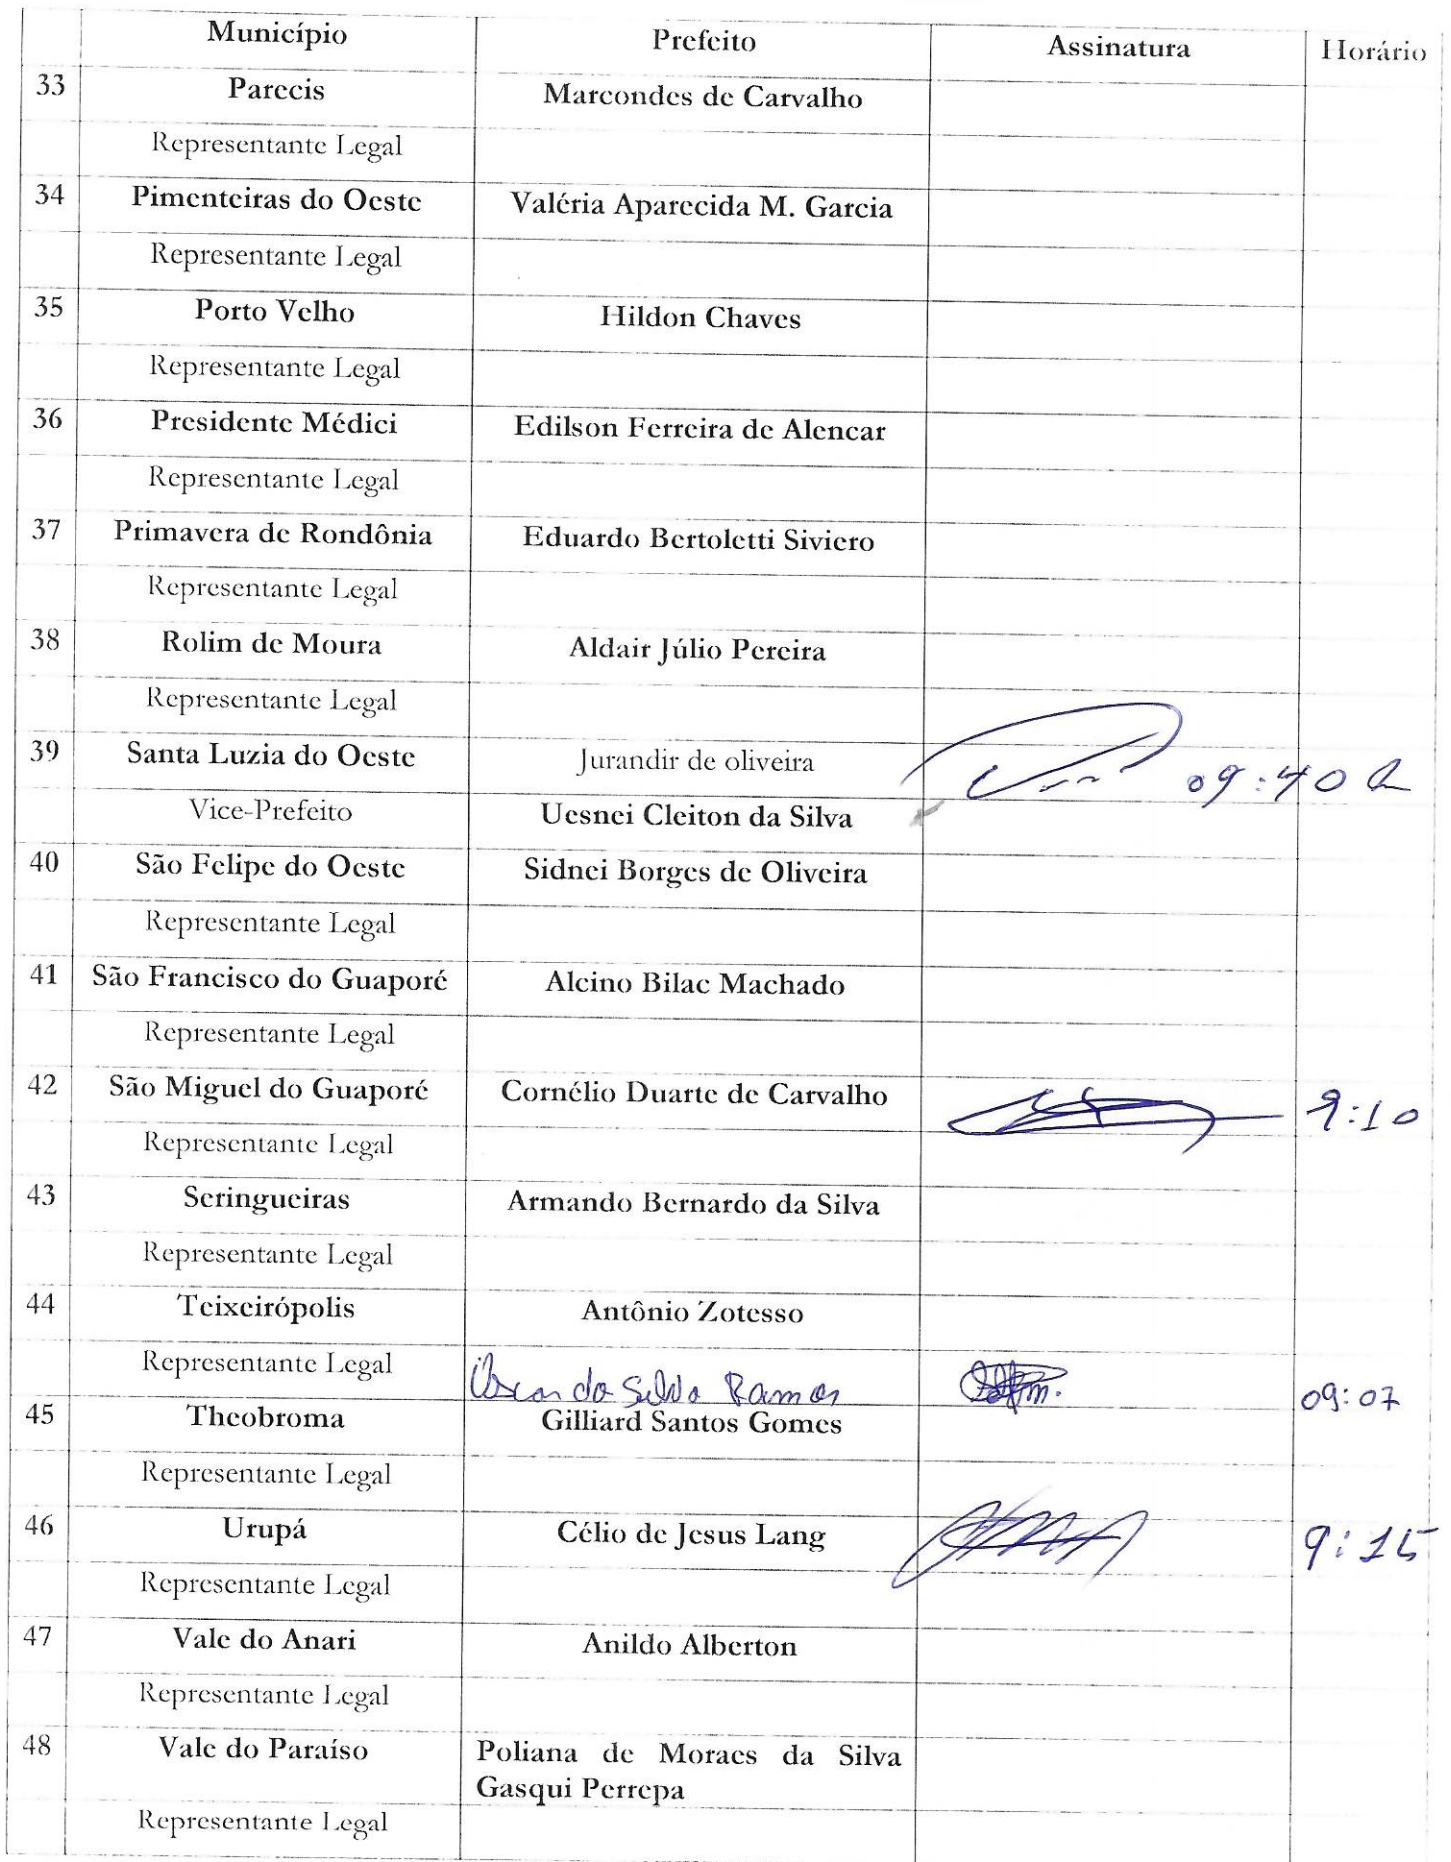 Município Prefeito Assinatura Horário
33 Parecis Marcondes de Carvalho
Representante Legal
34 Pimenteiras do Oeste Valéria Aparecida M. Garcia
Representante Legal
35 Porto Velho Hildon Chaves
Representante Legal
36 Presidente Médici Edilson Ferreira de Alencar
Representante Legal
37 Primavera de Rondônia Eduardo Bertoletti Siviero
Representante Legal
38 Rolim de Moura Aldair Júlio Pereira
Representante Legal
39 Santa Luzia do Oeste Jurandir de oliveira 09:40 h
Vice-Prefeito Uesnei Cleiton da Silva
40 São Felipe do Oeste Sidnei Borges de Oliveira
Representante Legal
41 São Francisco do Guaporé Alcino Bilac Machado
Representante Legal
42 São Miguel do Guaporé Cornélio Duarte de Carvalho 9:10
Representante Legal
43 Seringueiras Armando Bernardo da Silva
Representante Legal
44 Teixeirópolis Antônio Zotesso
Representante Legal da Silva Ramos 09:07
45 Theobroma Gilliard Santos Gomes
Representante Legal
46 Urupá Célio de Jesus Lang 9:15
Representante Legal
47 Vale do Anari Anildo Alberton
Representante Legal
48 Vale do Paraíso Poliana de Moraes da Silva
Gasqui Perrepa
Representante Legal